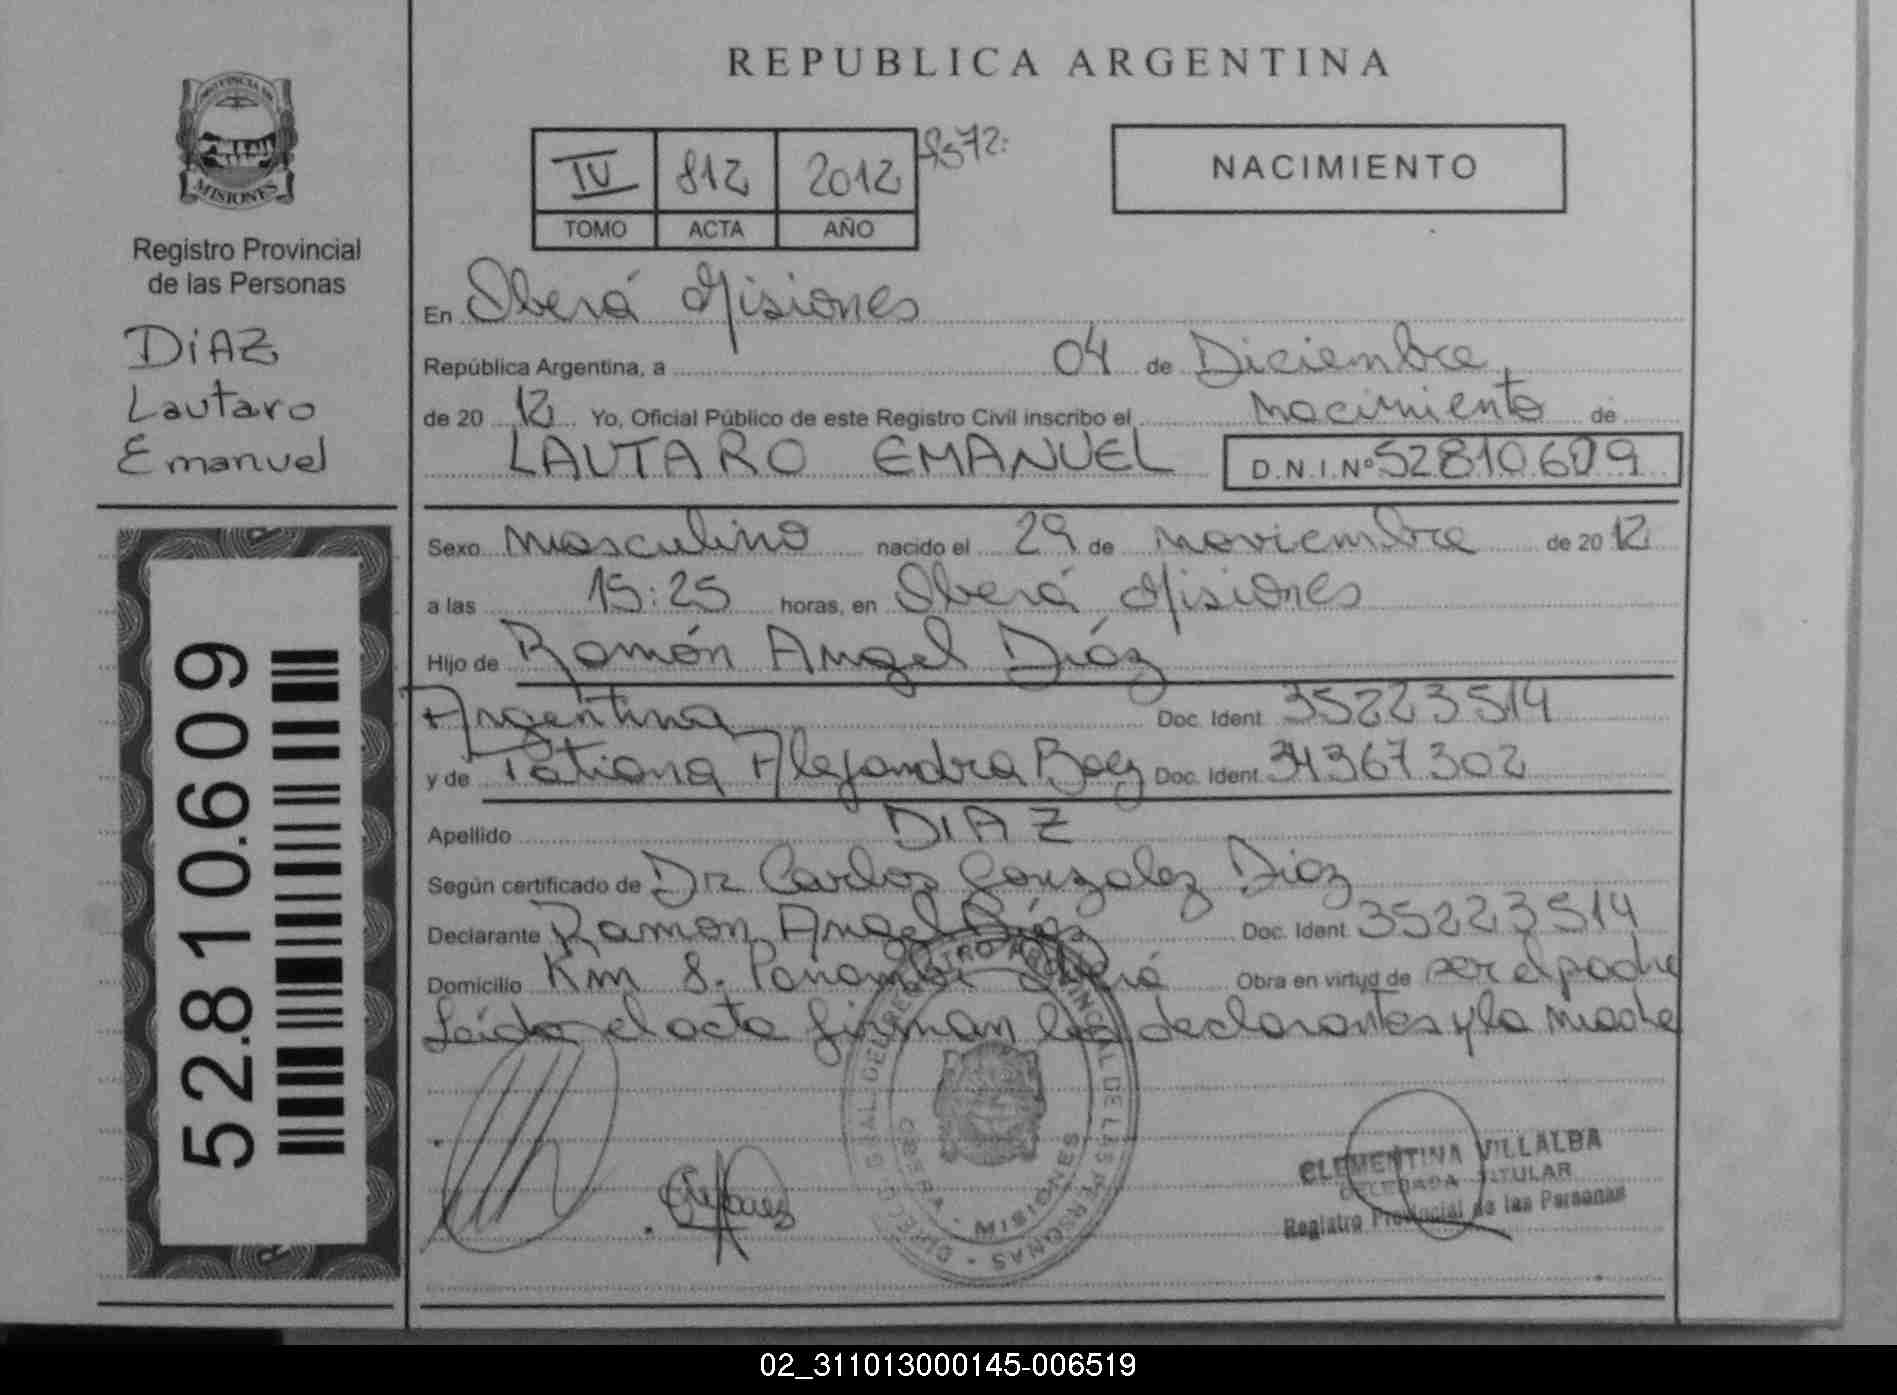 REPUBLICA ARGENTINA
PROVINCIA DE
MISIONES
Registro Provincial
de las Personas
DiAZ
Lautaro
Emanuel
52.810.609
IV 812 2012
TOMO ACTA AÑO
NACIMIENTO
En Oberá Misiones
República Argentina, a 04 de Diciembre
de 20 12 Yo, Oficial Público de este Registro Civil inscribo el nacimiento de
LAUTARO EMANUEL D.N.I.Nº 52810609
Sexo masculino nacido el 29 de noviembre de 20 12
a las 15:25 horas, en Oberá Misiones
Hijo de Ramón Angel Díaz
Argentina Doc. Ident. 35223514
y de Tatiana Alejandra Baez Doc. Ident. 34367302
Apellido DIAZ
Según certificado de Dr Carlos Gonzalez Diaz
Declarante Ramon Angel Díaz Doc. Ident. 35223514
Domicilio Km 8. Panambi Oberá Obra en virtud de ser el padre
Leída el acta firman los declarantes y la madre
REGISTRO PROVINCIAL DE LAS PERSONAS
OBERA - MISIONES
CLEMENTINA VILLALBA
DELEGADA TITULAR
Registro Provincial de las Personas
02_311013000145-006519